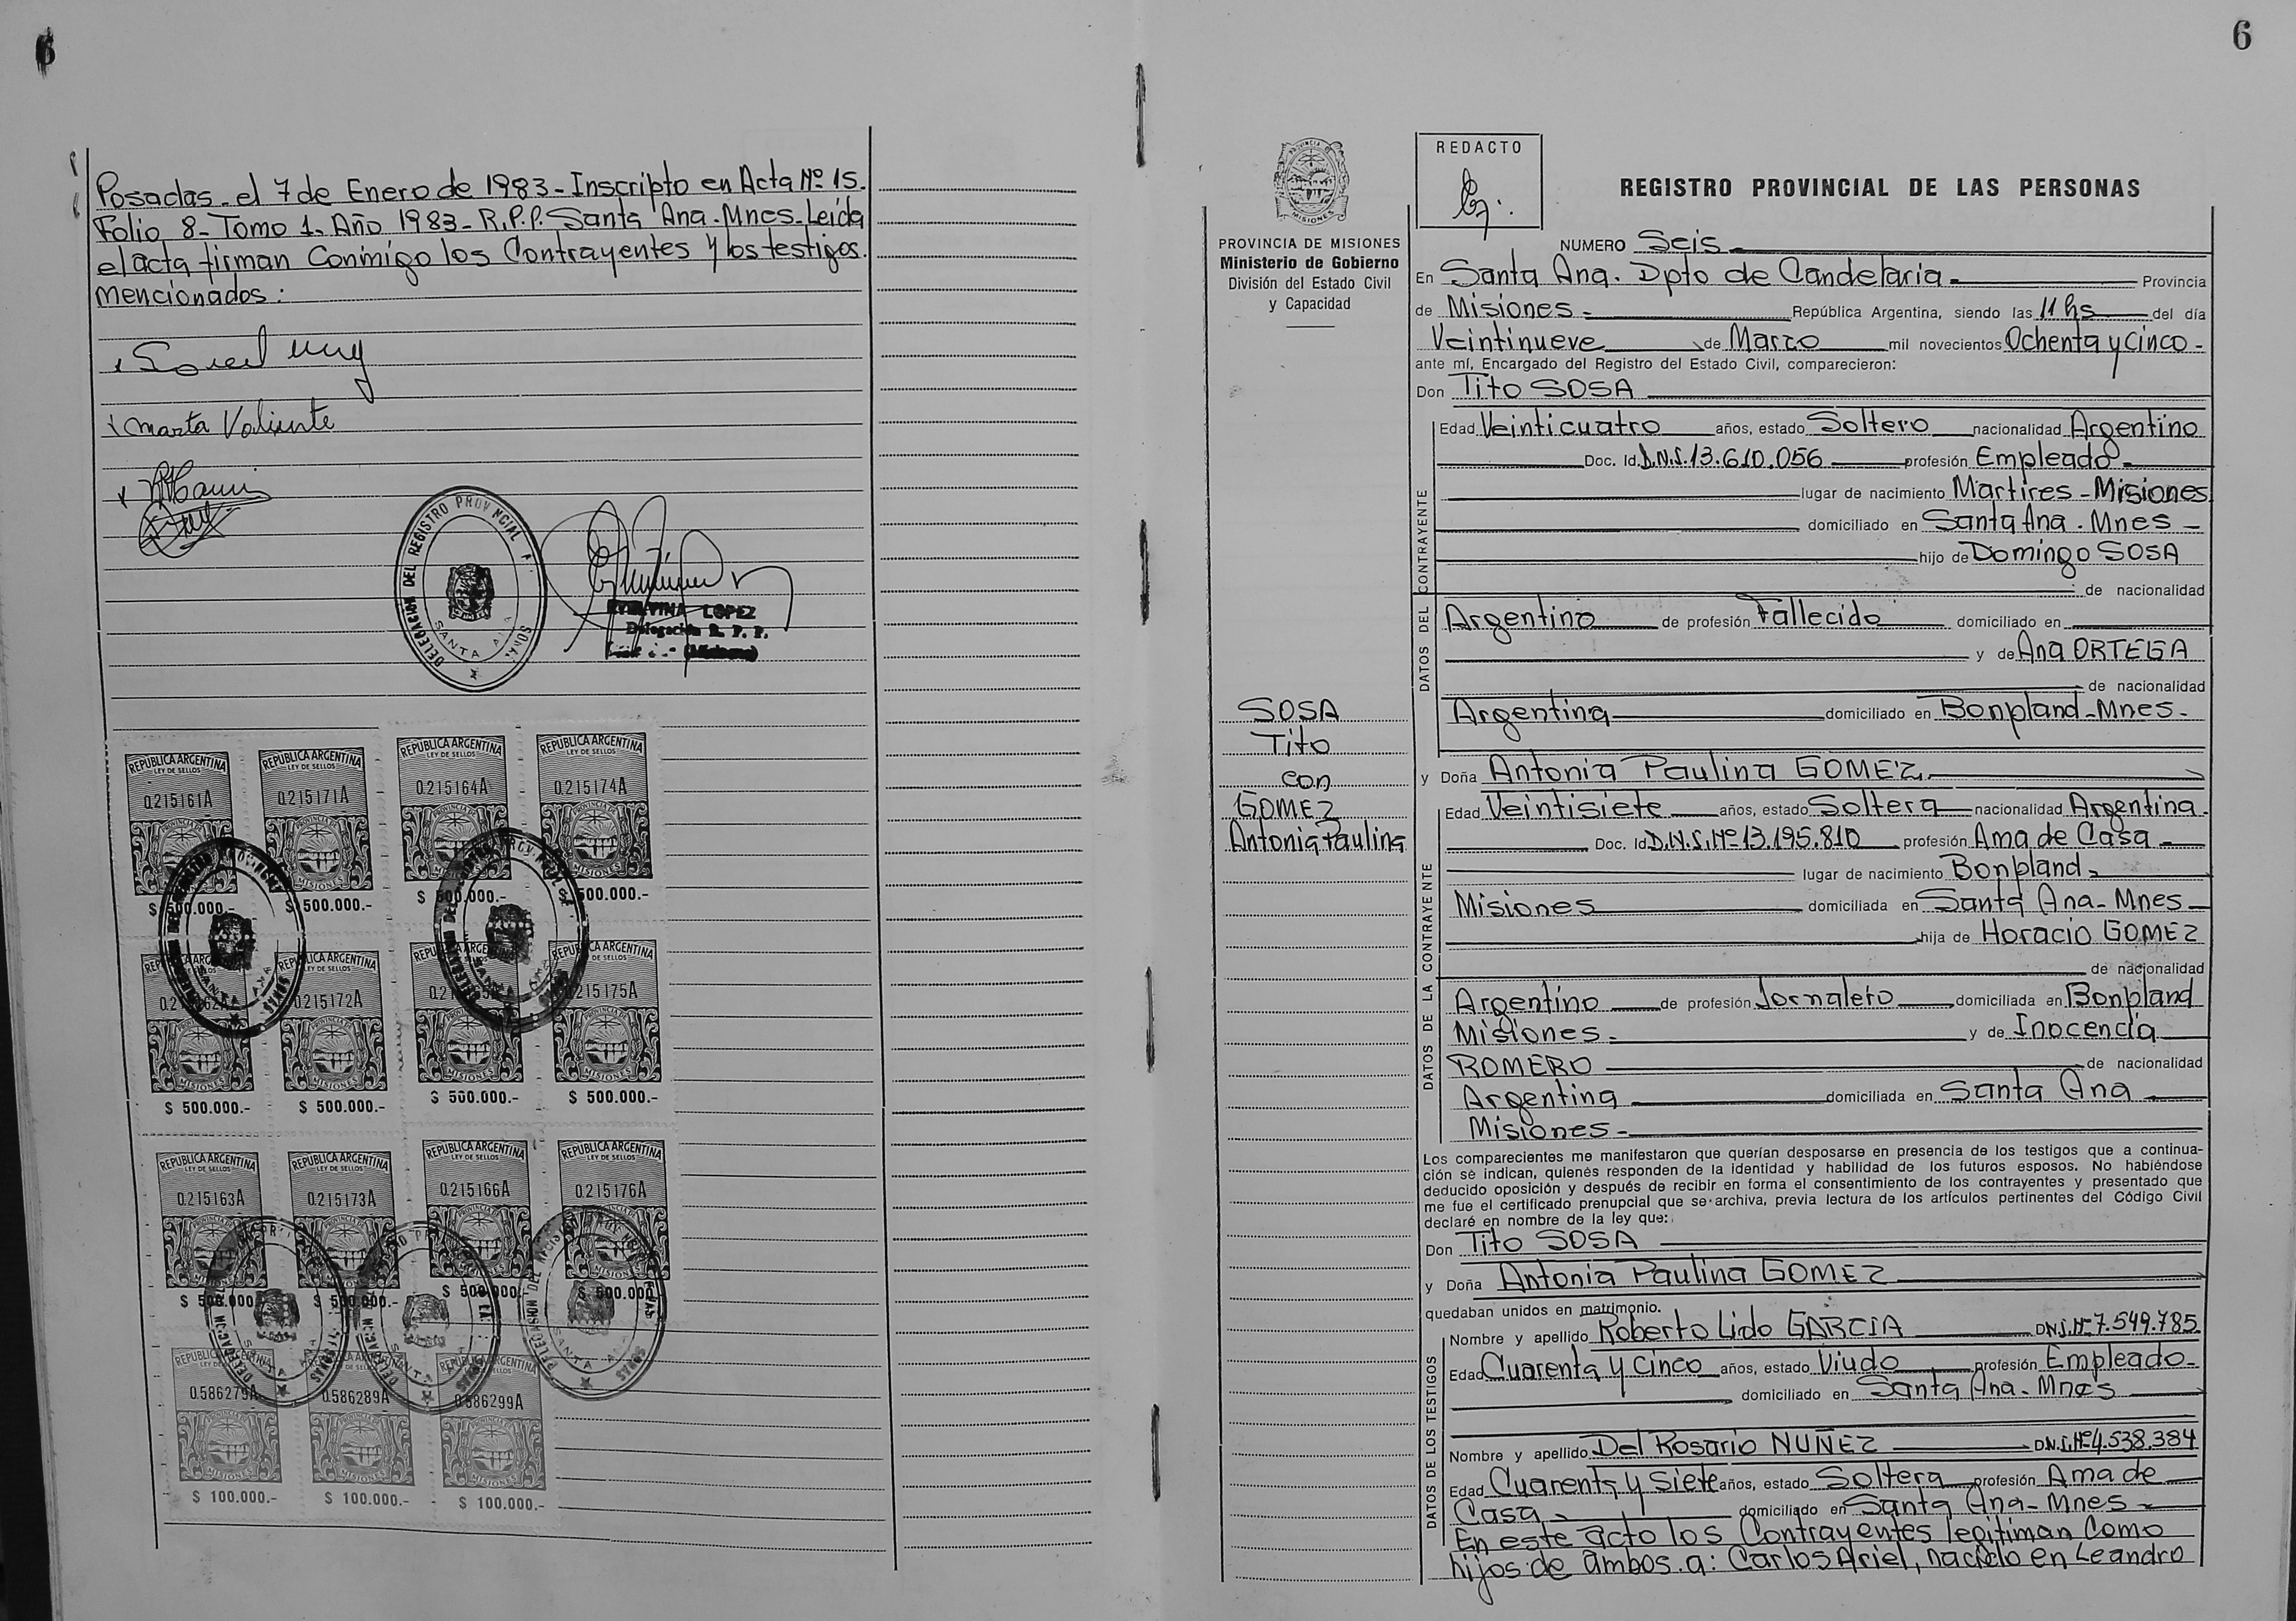 6
Posadas. el 7 de Enero de 1983 - Inscripto en Acta Nº 15.
Folio 8 - Tomo 1. Año 1983 - R.P.P. Santa Ana - Mnes - Leída
el acta firman Conmigo los Contrayentes y los testigos
Mencionados:
Marta Valiente
DELEGACION DEL REGISTRO PROVINCIAL
SANTA ANA
LOPEZ
Delegación R. P. P.
(Misiones)
REPUBLICA ARGENTINA REPUBLICA ARGENTINA REPUBLICA ARGENTINA REPUBLICA ARGENTINA
LEY DE SELLOS LEY DE SELLOS LEY DE SELLOS LEY DE SELLOS
0.215161A 0.215171A 0.215164A 0.215174A
MISIONES MISIONES MISIONES MISIONES
$ 500.000.- $ 500.000.- $ 500.000.- $ 500.000.-
REPUBLICA ARGENTINA REPUBLICA ARGENTINA
LEY DE SELLOS
0.215172A 215175A
MISIONES MISIONES MISIONES MISIONES
$ 500.000.- $ 500.000.- $ 500.000.- $ 500.000.-
REPUBLICA ARGENTINA REPUBLICA ARGENTINA REPUBLICA ARGENTINA REPUBLICA ARGENTINA
LEY DE SELLOS LEY DE SELLOS LEY DE SELLOS LEY DE SELLOS
0.215163A 0.215173A 0.215166A 0.215176A
$ 500.000 $ 500.000.- $ 500.000.- $ 500.000
0.586279A 0.586289A 0.586299A
MISIONES MISIONES MISIONES
$ 100.000.- $ 100.000.- $ 100.000.-
6
PROVINCIA DE MISIONES
Ministerio de Gobierno
División del Estado Civil
y Capacidad
SOSA
Tito
con
GOMEZ
Antonia Paulina
REDACTO
REGISTRO PROVINCIAL DE LAS PERSONAS
NUMERO Seis
En Santa Ana. Dpto de Candelaria Provincia
de Misiones República Argentina, siendo las 11 hs del día
Veintinueve de Marzo mil novecientos Ochenta y cinco -
ante mí, Encargado del Registro del Estado Civil, comparecieron:
Don Tito SOSA
DATOS DEL CONTRAYENTE
Edad Veinticuatro años, estado Soltero nacionalidad Argentino
Doc. Id. D.N.I. 13.610.056 profesión Empleado
lugar de nacimiento Martires - Misiones
domiciliado en Santa Ana. Mnes -
hijo de Domingo SOSA
de nacionalidad
Argentino de profesión Fallecido domiciliado en
y de Ana ORTEGA
de nacionalidad
Argentina domiciliado en Bonpland - Mnes -
y Doña Antonia Paulina GOMEZ
DATOS DE LA CONTRAYENTE
Edad Veintisiete años, estado Soltera nacionalidad Argentina
Doc. Id D.N.I. Nº 13.195.810 profesión Ama de Casa
lugar de nacimiento Bonpland
Misiones domiciliada en Santa Ana - Mnes
hija de Horacio GOMEZ
de nacionalidad
Argentino de profesión Jornalero domiciliada en Bonpland
Misiones y de Inocencia
ROMERO de nacionalidad
Argentina domiciliada en Santa Ana
Misiones
Los comparecientes me manifestaron que querían desposarse en presencia de los testigos que a continua-
ción se indican, quienes responden de la identidad y habilidad de los futuros esposos. No habiéndose
deducido oposición y después de recibir en forma el consentimiento de los contrayentes y presentado que
me fue el certificado prenupcial que se archiva, previa lectura de los artículos pertinentes del Código Civil
declaré en nombre de la ley que:
Don Tito SOSA
y Doña Antonia Paulina GOMEZ
quedaban unidos en matrimonio.
DATOS DE LOS TESTIGOS
Nombre y apellido Roberto Lido GARCIA DNI. Nº 7.549.785
Edad Cuarenta y cinco años, estado Viudo profesión Empleado
domiciliado en Santa Ana - Mnes
Nombre y apellido Del Rosario NUÑEZ D.N.I. Nº 4.538.384
Edad Cuarenta y Siete años, estado Soltera profesión Ama de
Casa domiciliado en Santa Ana - Mnes
En este acto los Contrayentes legitiman Como
hijos de ambos. a: Carlos Ariel, nacido en Leandro